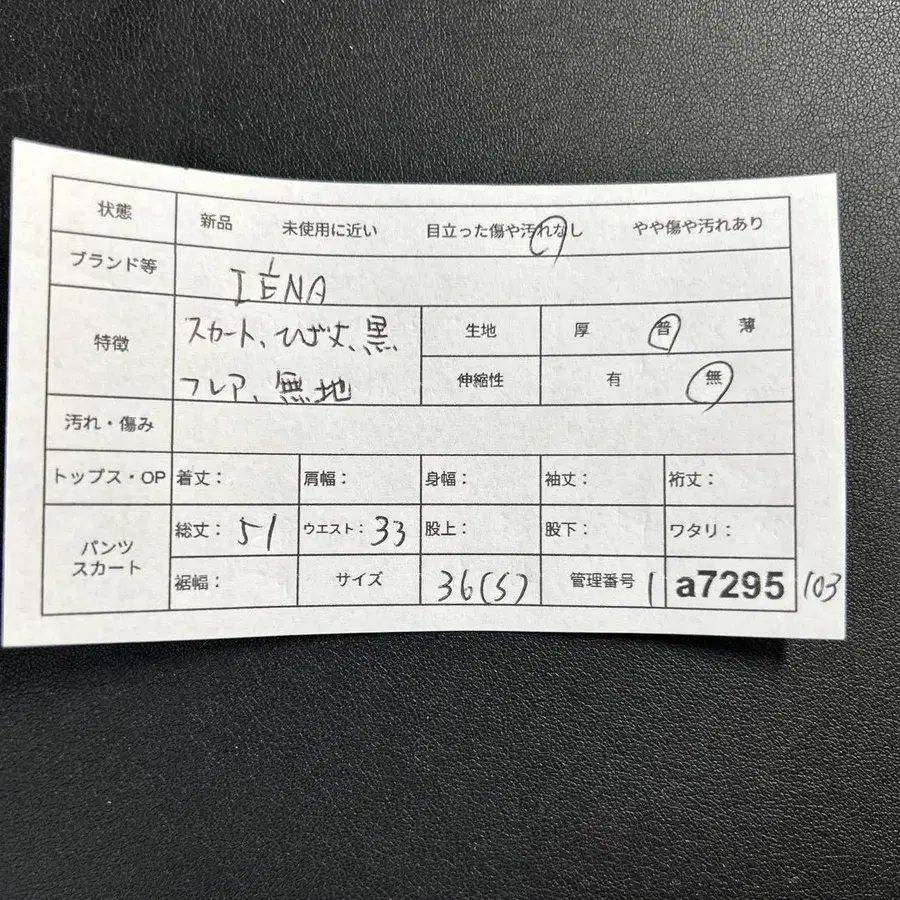 状態 新品 未使用に近い 目立った傷や汚れなし やや傷や汚れあり
ブランド等 IÉNA
特徴 スカート、ひざ丈、黒、
フレア、無地
生地 厚 普 薄
伸縮性 有 無
汚れ・傷み
トップス・OP 着丈: 肩幅: 身幅: 袖丈: 裄丈:
パンツ
スカート
総丈: 51 ウエスト: 33 股上: 股下: ワタリ:
裾幅: サイズ 36(S) 管理番号 1 a7295 103